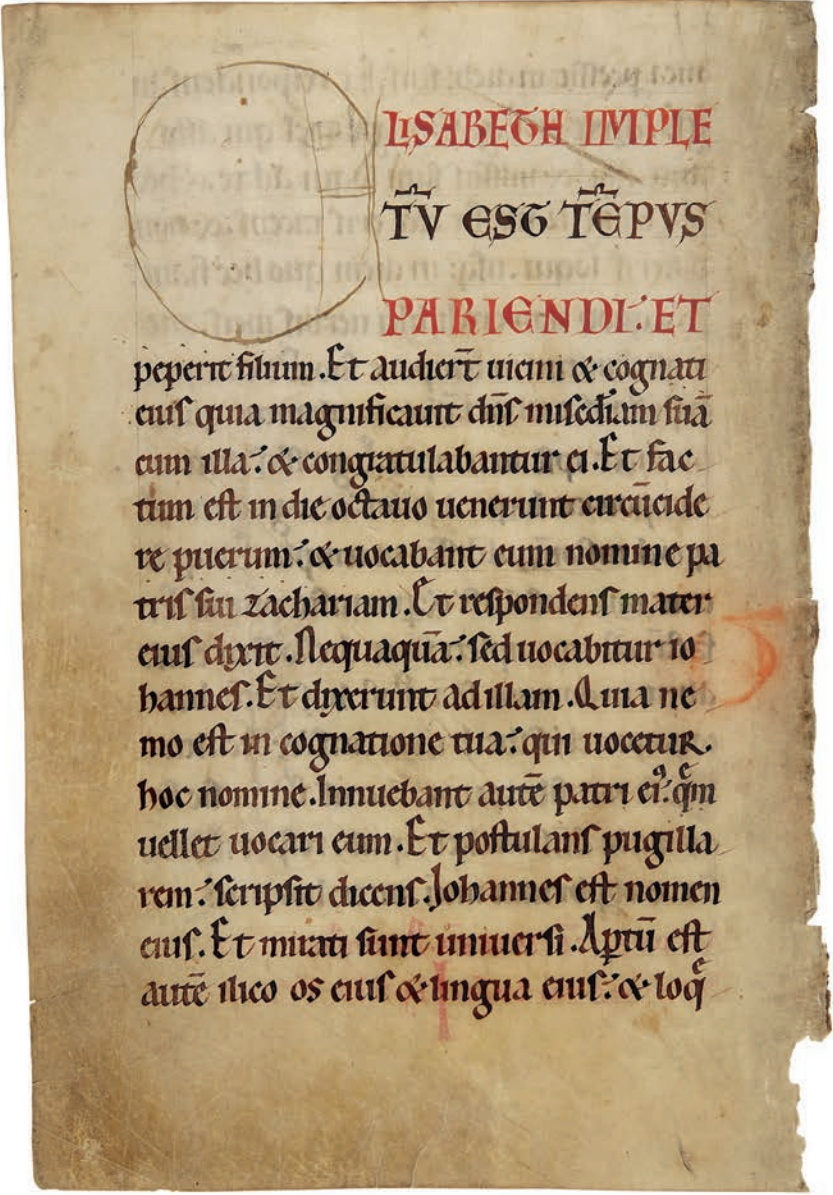 LISABETH IMPLE
TV̄ EST TĒPVS
PARIENDI. ET
peperit filium. Et audier̄t uicini & cognati
eius quia magnificauit dn̄s misc̄diam suā
cum illa. & congratulabantur ei. Et fac
tum est in die octauo uenerunt circūcide
re puerum. & uocabant eum nomine pa
tris sui zachariam. Et respondens mater
eius dixit. Nequaquā. sed uocabitur io
hannes. Et dixerunt ad illam. Quia ne
mo est in cognatione tua. qui uocetur
hoc nomine. Innuebant autē patri ei⁹. quē
uellet uocari eum. Et postulans pugilla
rem. scripsit dicens. Johannes est nomen
eius. Et mirati sunt uniuersi. Aptū est
autē ilico os eius & lingua eius. & loq̄